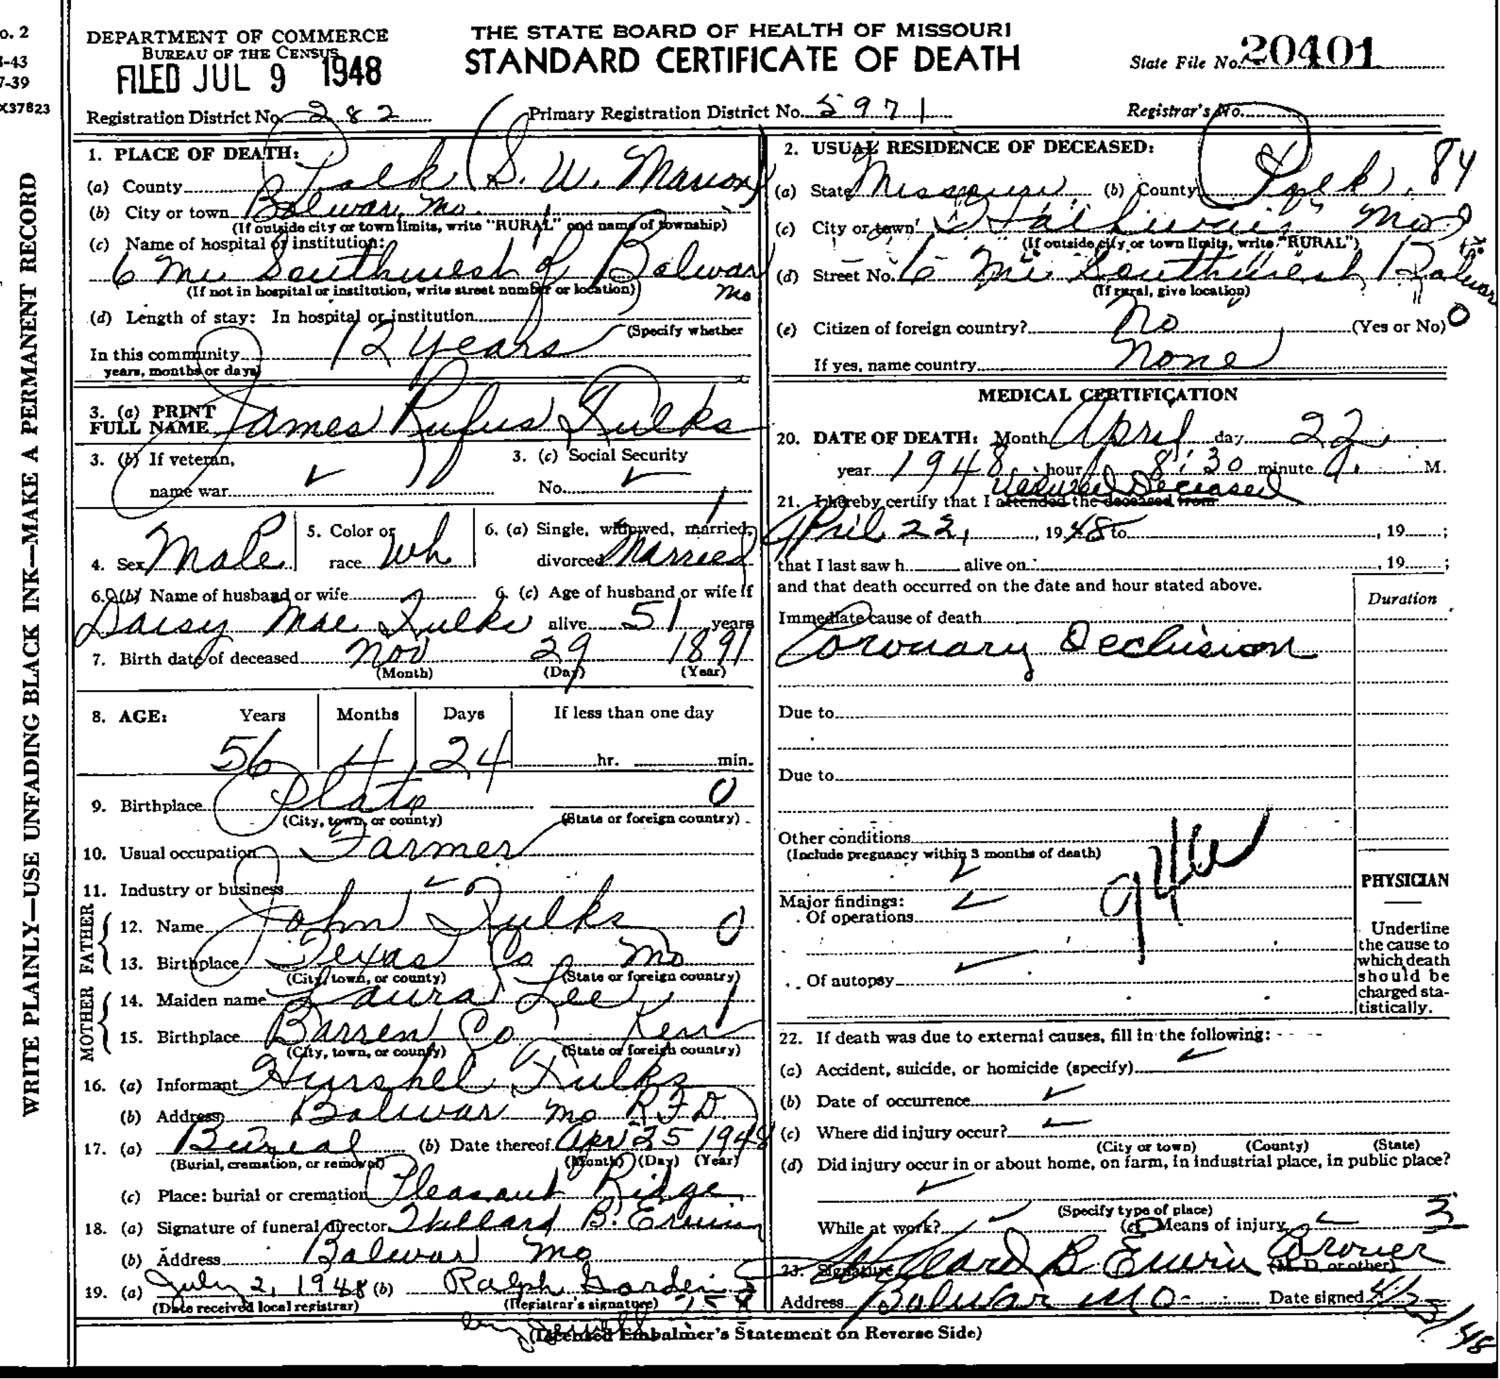 o. 2
-43
7-39
X37823
WRITE PLAINLY—USE UNFADING BLACK INK—MAKE A PERMANENT RECORD
DEPARTMENT OF COMMERCE
BUREAU OF THE CENSUS
FILED JUL 9 1948
THE STATE BOARD OF HEALTH OF MISSOURI
STANDARD CERTIFICATE OF DEATH
State File No. 20401
Registration District No. 282
Primary Registration District No. 5971
Registrar's No.
1. PLACE OF DEATH:
(a) County Polk (S. W. Marion)
(b) City or town Bolivar, Mo.
(If outside city or town limits, write "RURAL" and name of township)
(c) Name of hospital or institution:
6 Mi Southwest of Bolivar Mo
(If not in hospital or institution, write street number or location)
(d) Length of stay: In hospital or institution
(Specify whether
In this community 12 years
years, months or days)
3. (a) PRINT FULL NAME James Rufus Fulks
3. (b) If veteran, name war ✓
3. (c) Social Security No. ✓
4. Sex Male
5. Color or race Wh
6. (a) Single, widowed, married, divorced Married
6. (b) Name of husband or wife
6. (c) Age of husband or wife if
Daisy Mae Fulks alive 51 years
7. Birth date of deceased Nov 29 1891
(Month) (Day) (Year)
8. AGE: Years Months Days If less than one day
56 4 24 hr. min.
9. Birthplace Plato 0
(City, town, or county) (State or foreign country)
10. Usual occupation Farmer
11. Industry or business
FATHER
12. Name John Fulks 0
13. Birthplace Texas Co Mo
(City, town, or county) (State or foreign country)
MOTHER
14. Maiden name Laura Lee 1
15. Birthplace Barren Co Ken
(City, town, or county) (State or foreign country)
16. (a) Informant Hurshel Fulks
(b) Address Bolivar Mo RFD
17. (a) Bureal (b) Date thereof Apr 25 1948
(Burial, cremation, or removal) (Month) (Day) (Year)
(c) Place: burial or cremation Pleasant Ridge
18. (a) Signature of funeral director Willard B. Erwin
(b) Address Bolivar Mo
19. (a) July 2, 1948 (b) Ralph Gordon
(Date received local registrar) (Registrar's signature)
2. USUAL RESIDENCE OF DECEASED:
(a) State Missouri (b) County Polk 84
(c) City or town Mo
(If outside city or town limits, write "RURAL")
(d) Street No. 6 Mi Southwest Bolivar
(If rural, give location)
(e) Citizen of foreign country? No (Yes or No) 0
If yes, name country None
MEDICAL CERTIFICATION
20. DATE OF DEATH: Month April day 22
year 1948 hour 8:30 minute A. M.
21. I hereby certify that I attended the deceased from Viewed Deceased
April 22, 1948 to , 19 ;
that I last saw h alive on , 19 ;
and that death occurred on the date and hour stated above.
Duration
Immediate cause of death
Coronary Occlusion
Due to
Due to
Other conditions
(Include pregnancy within 3 months of death)
94a
PHYSICIAN
Major findings:
Of operations ✓
Of autopsy ✓
Underline the cause to which death should be charged statistically.
22. If death was due to external causes, fill in the following:
(a) Accident, suicide, or homicide (specify) ✓
(b) Date of occurrence ✓
(c) Where did injury occur? ✓
(City or town) (County) (State)
(d) Did injury occur in or about home, on farm, in industrial place, in public place?
✓
(Specify type of place)
While at work? ✓ (e) Means of injury ✓ 3
23. Signature Willard B Erwin Coroner
(M. D. or other)
Address Bolivar Mo Date signed 4/23/48
(Licensed Embalmer's Statement on Reverse Side)